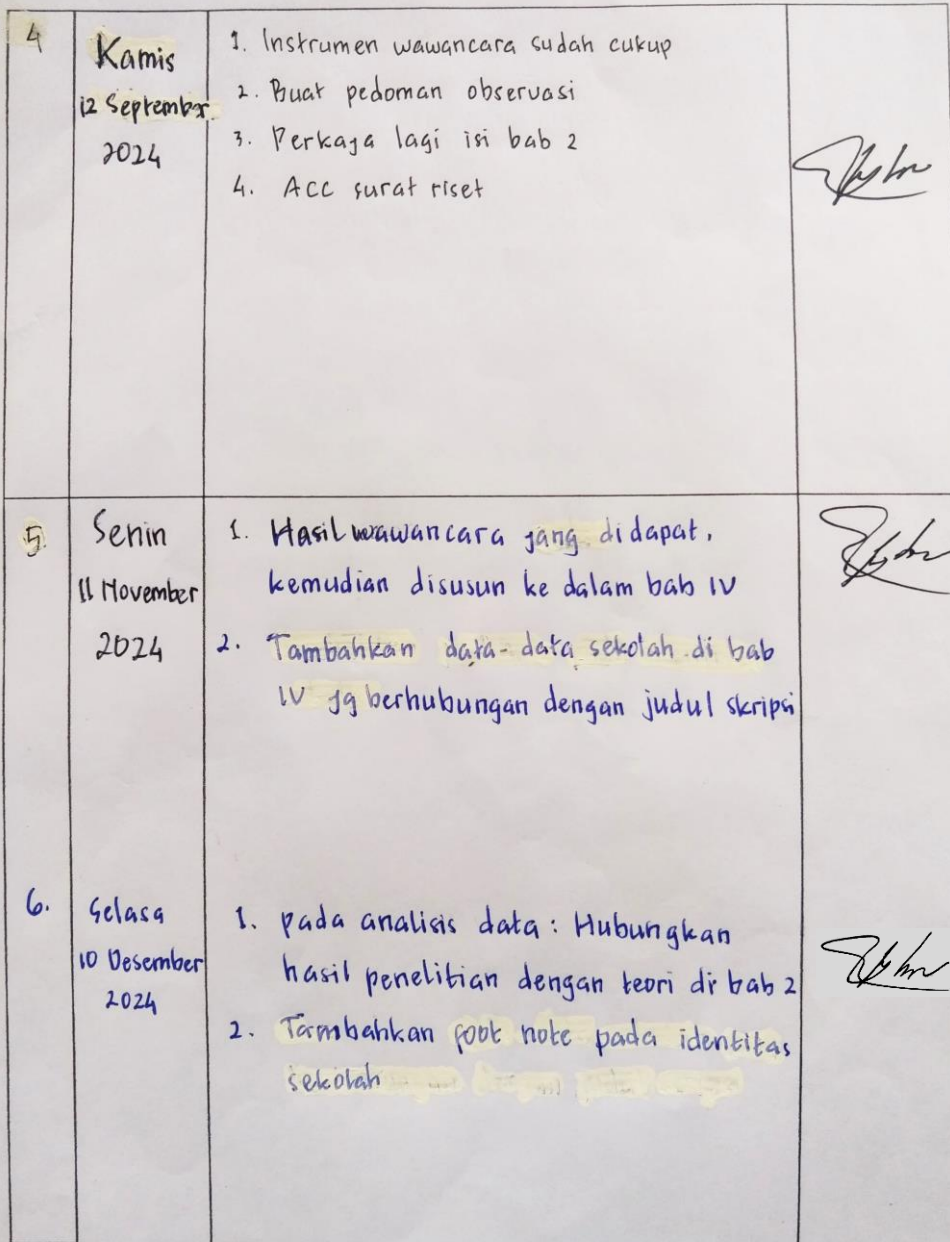 4
Kamis
12 September
2024
1. Instrumen wawancara sudah cukup
2. Buat pedoman observasi
3. Perkaya lagi isi bab 2
4. ACC surat riset
5.
Senin
11 November
2024
1. Hasil wawancara yang didapat,
kemudian disusun ke dalam bab IV
2. Tambahkan data-data sekolah di bab
IV yg berhubungan dengan judul skripsi
6.
Selasa
10 Desember
2024
1. pada analisis data : Hubungkan
hasil penelitian dengan teori di bab 2
2. Tambahkan foot note pada identitas
sekolah